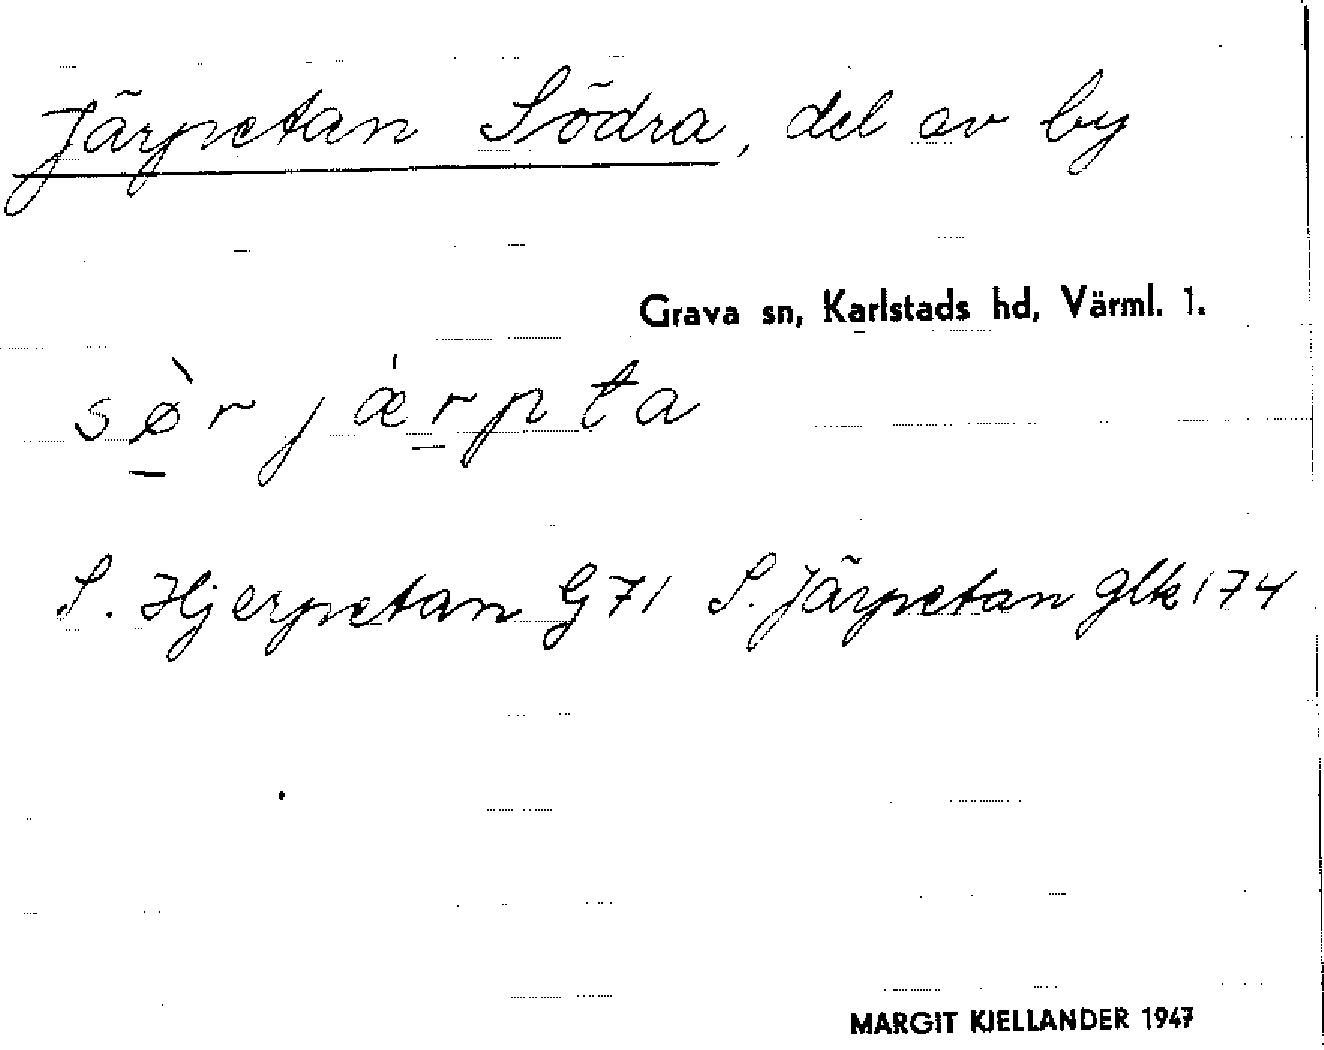 Järpetan Södra, del av by
Grava sn, Karlstads hd, Värml. l.
sø̠̀r jæ̍r̠pta
S. Hjerpetan G71 S. Järpetan glk 174
MARGIT KJELLANDER 1947